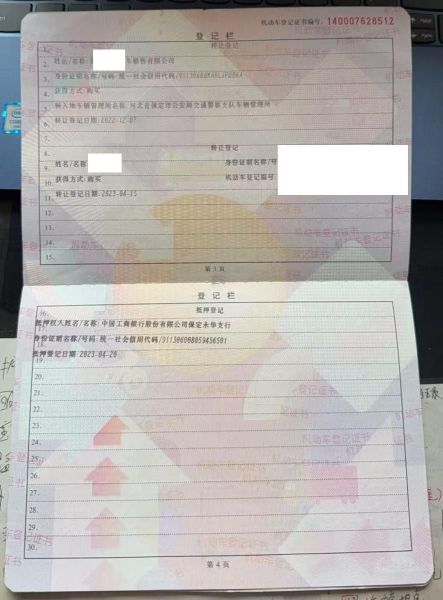 机动车登记证书编号: 140007628512
登记栏
1. 转让登记
2. 姓名/名称: 车销售有限公司
3. 身份证明名称/号码: 统一社会信用代码
4. 获得方式: 购买
5. 转入地车辆管理所名称: 河北省保定市公安局交通警察支队车辆管理所
6. 转让登记日期: 2022-12-07
7.
8. 转让登记
9. 姓名/名称: 身份证明名称/号
10. 获得方式: 购买 机动车登记编号:
11. 转让登记日期: 2023-04-15
12.
13.
14.
15.
第 3 页
登记栏
16. 抵押登记
17. 抵押权人姓名/名称: 中国工商银行股份有限公司保定永华支行
18. 身份证明名称/号码: 统一社会信用代码/911306008059456501
19. 抵押登记日期: 2023-04-20
20.
21.
22.
23.
24.
25.
26.
27.
28.
29.
30.
第 4 页